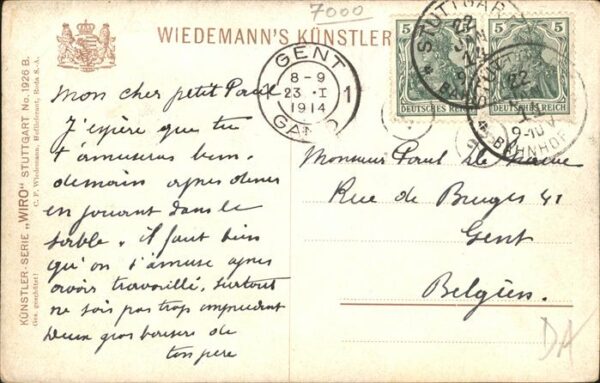 7000
WIEDEMANN'S KÜNSTLER
KÜNSTLER-SERIE „WIRO" STUTTGART No. 1926 B.
C. F. Wiedemann, Hoflieferant, Roda S.-A.
Ges. geschützt!
5 5
DEUTSCHES REICH DEUTSCHES REICH
STUTTGART
22
JAN
14
BAHNHOF
22
9-10 V
BAHNHOF
GENT
8-9
23 I
1914
1
Mon cher petit Paul
J'espère que tu
t'amuseras bien
demain apres diner
en jouant dans le
sable. il faut bien
qu'on s'amuse apres
avoir travaillé, surtout
ne sois pas trop imprudent
Deux gros baisers de
ton père
Monsieur Paul
Rue de Bruges 41
Gent
Belgien.
DA